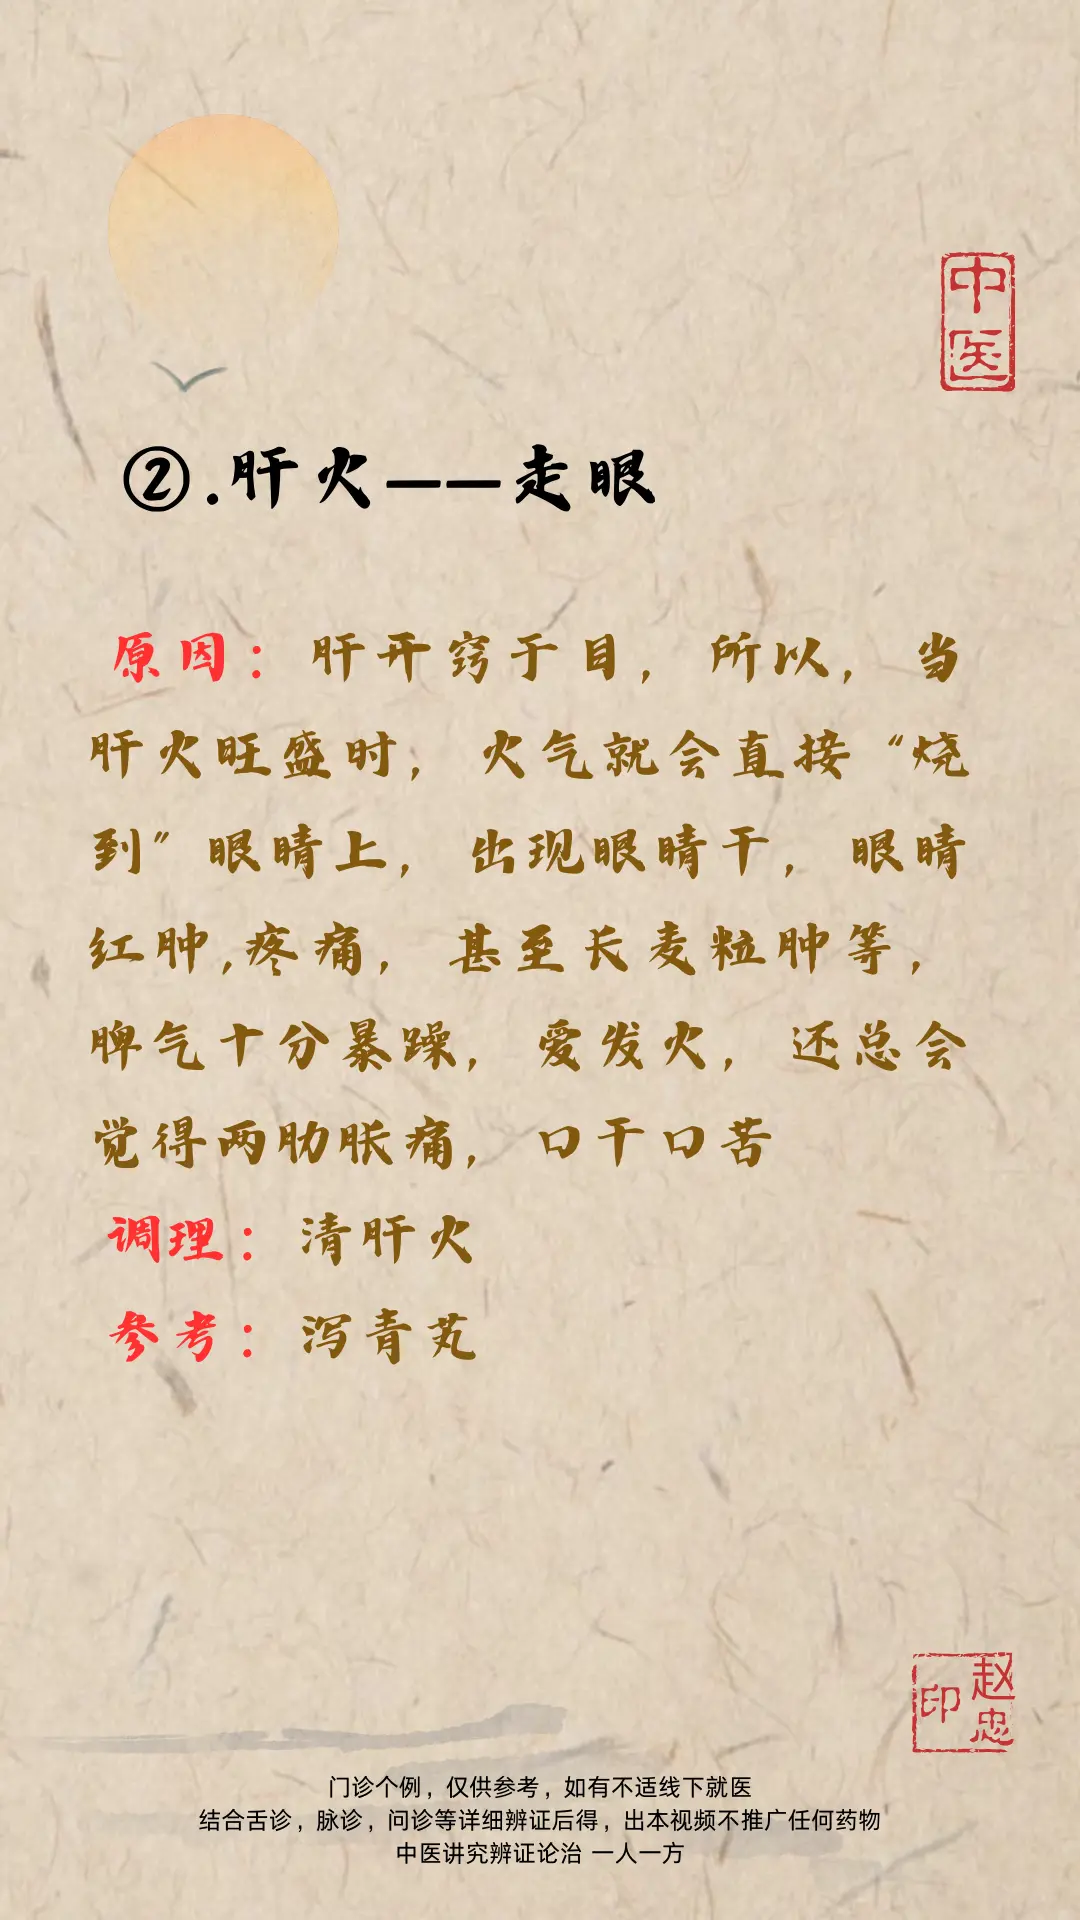 中医
②.肝火——走眼
原因：肝开窍于目，所以，当
肝火旺盛时，火气就会直接“烧
到”眼睛上，出现眼睛干，眼睛
红肿,疼痛，甚至长麦粒肿等，
脾气十分暴躁，爱发火，还总会
觉得两肋胀痛，口干口苦
调理：清肝火
参考：泻青芄
赵忠印
门诊个例，仅供参考，如有不适线下就医
结合舌诊，脉诊，问诊等详细辨证后得，出本视频不推广任何药物
中医讲究辨证论治 一人一方